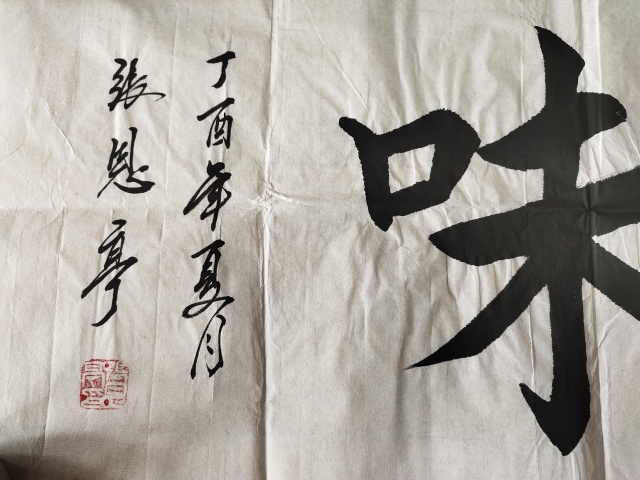 味
丁酉年夏月
張恩亭